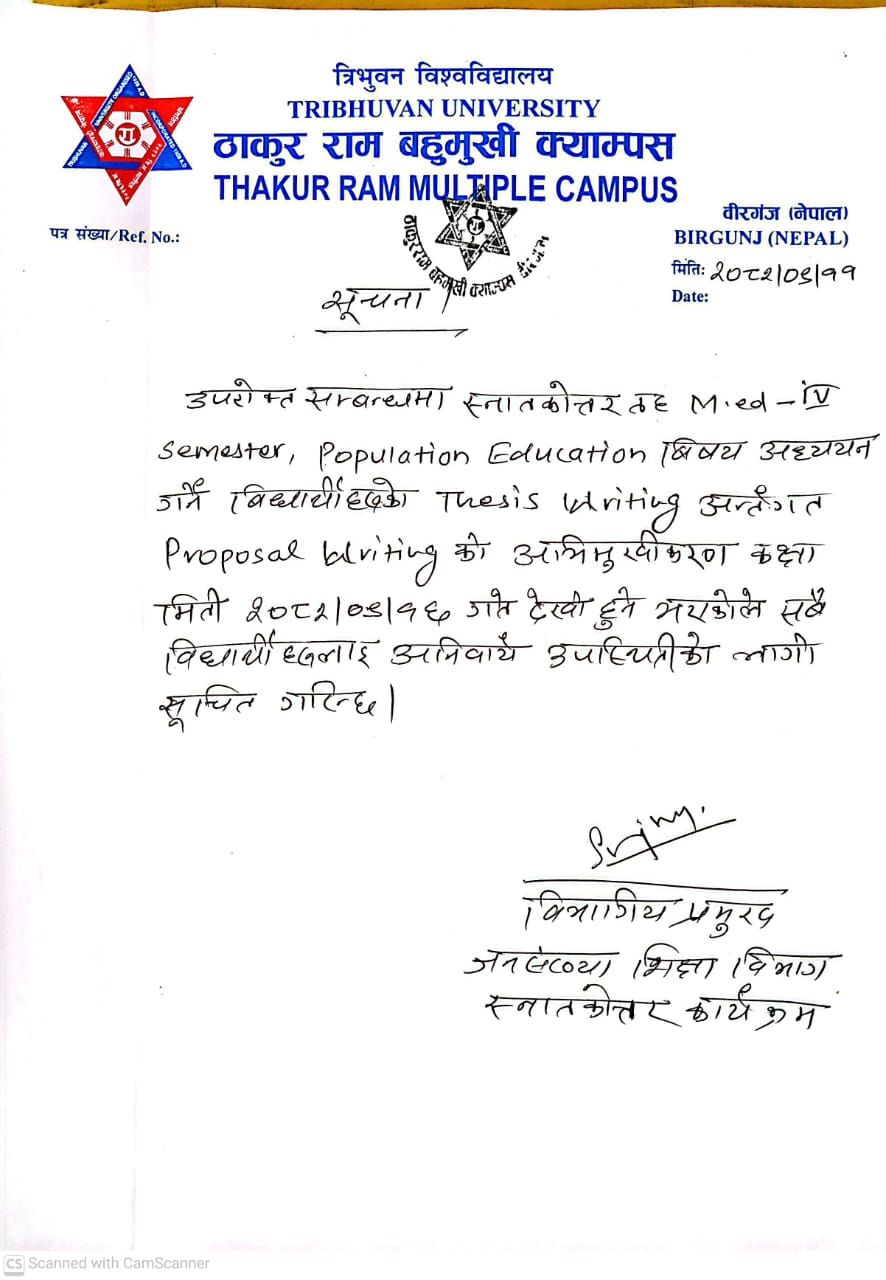 त्रिभुवन विश्वविद्यालय
TRIBHUVAN UNIVERSITY
ठाकुर राम बहुमुखी क्याम्पस
THAKUR RAM MULTIPLE CAMPUS
वीरगंज (नेपाल)
पत्र संख्या/Ref. No.:
BIRGUNJ (NEPAL)
मिति: २०८२/०६/११
Date:
ठाकुरराम बहुमुखी क्याम्पस वीरगंज
सूचना।
उपरोक्त सम्बन्धमा स्नातकोत्तर तह M.ed - IV
Semester, Population Education विषय अध्ययन
गर्ने विद्यार्थीहरुको Thesis Writing अर्न्तगत
Proposal Writing को अभिमुखीकरण कक्षा
मिती २०८२/०६/१६ गते देखी हुने भएकोले सबै
विद्यार्थीहरुलाइ अनिवार्य उपस्थितीको लागी
सूचित गरिन्छ।
विभागिय प्रमुख
जनसंख्या शिक्षा विभाग
स्नातकोत्तर कार्यक्रम
CS Scanned with CamScanner